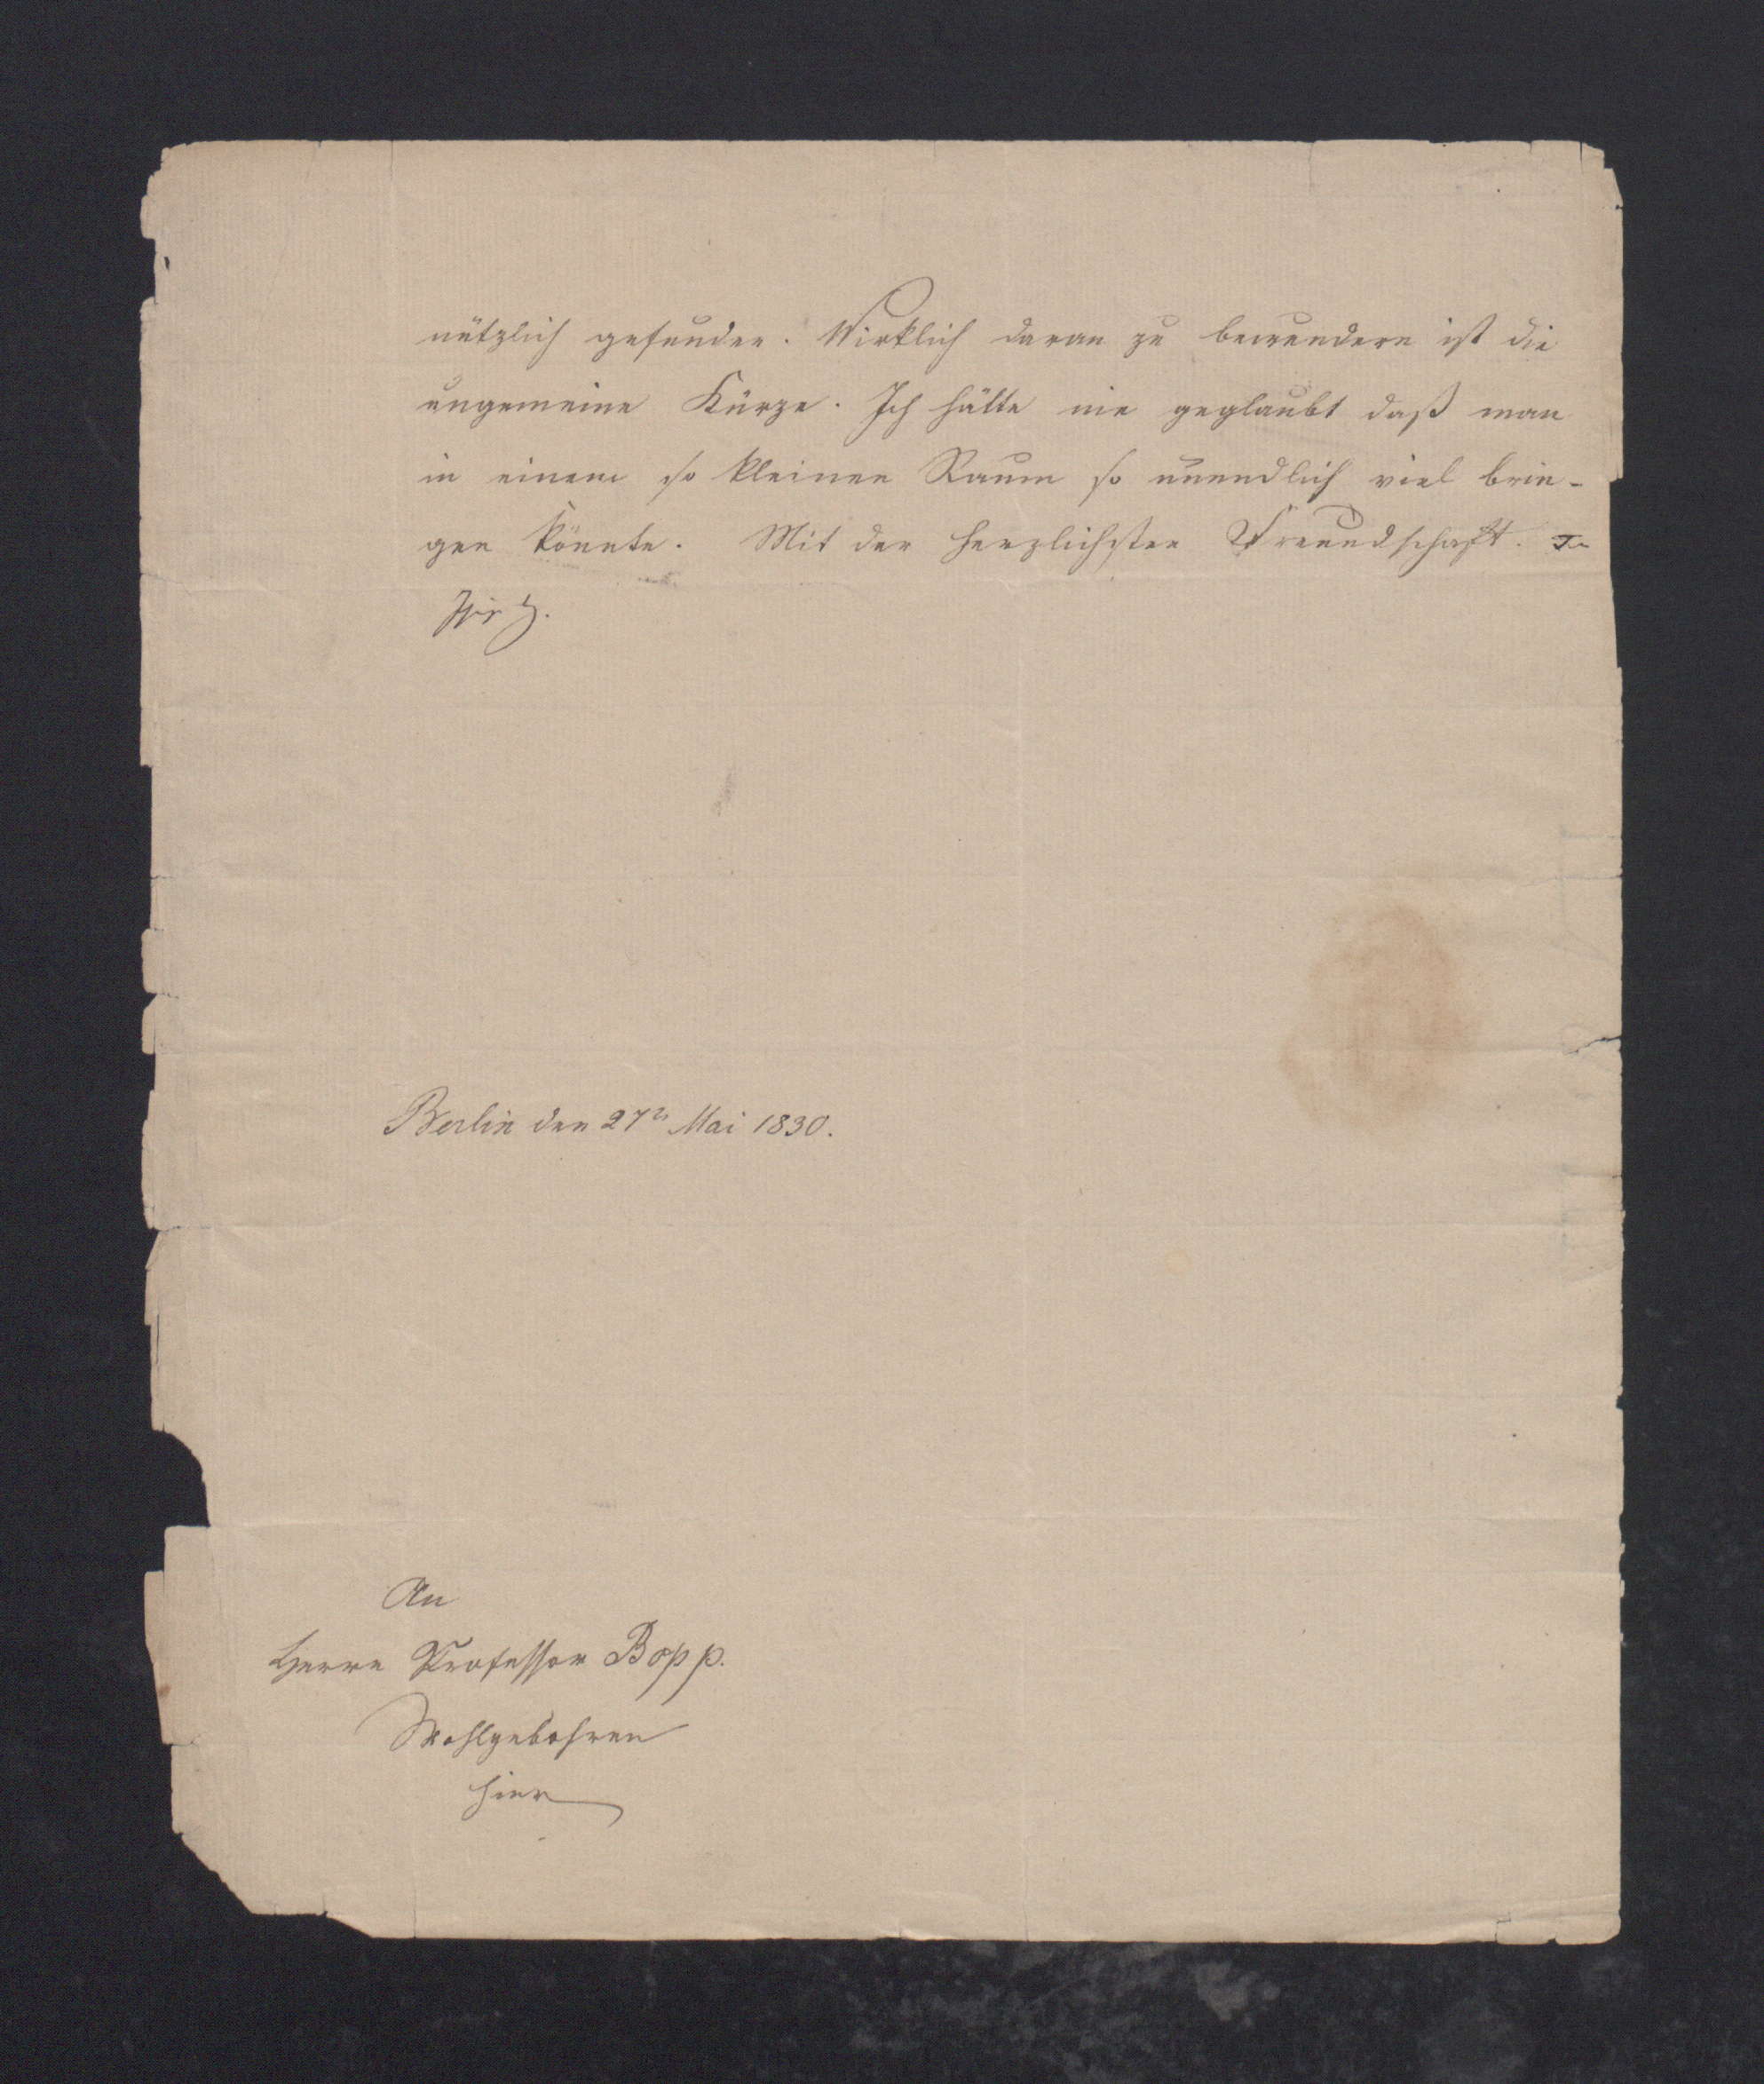 nützlich gefunden. Wirklich daran zu bewundern ist die
ungemeine Kürze. Ich hätte nie geglaubt daß man
in einem so kleinen Raum so unendlich viel brin-
gen könnte. Mit der herzlichsten Freundschaft.
Ihr H.
Berlin den 27n Mai 1830.
An
Herrn Professor Bopp.
Wohlgebohren
hier